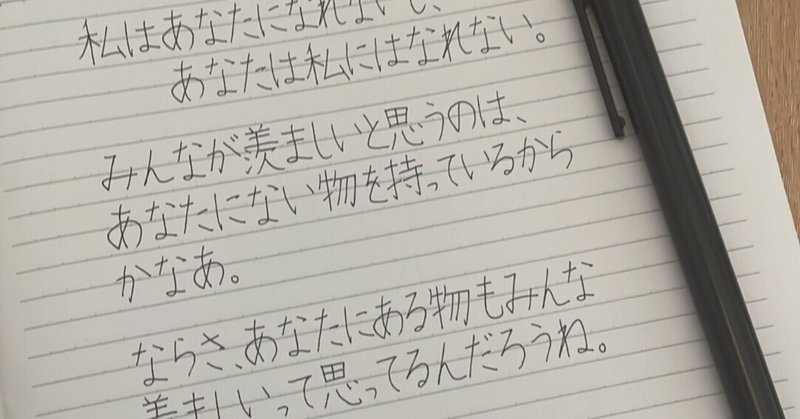 私はあなたになれないし、
あなたは私にはなれない。
みんなが羨ましいと思うのは、
あなたにない物を持っているから
かなあ。
ならさ、あなたにある物もみんな
羨ましいって思ってるんだろうね。